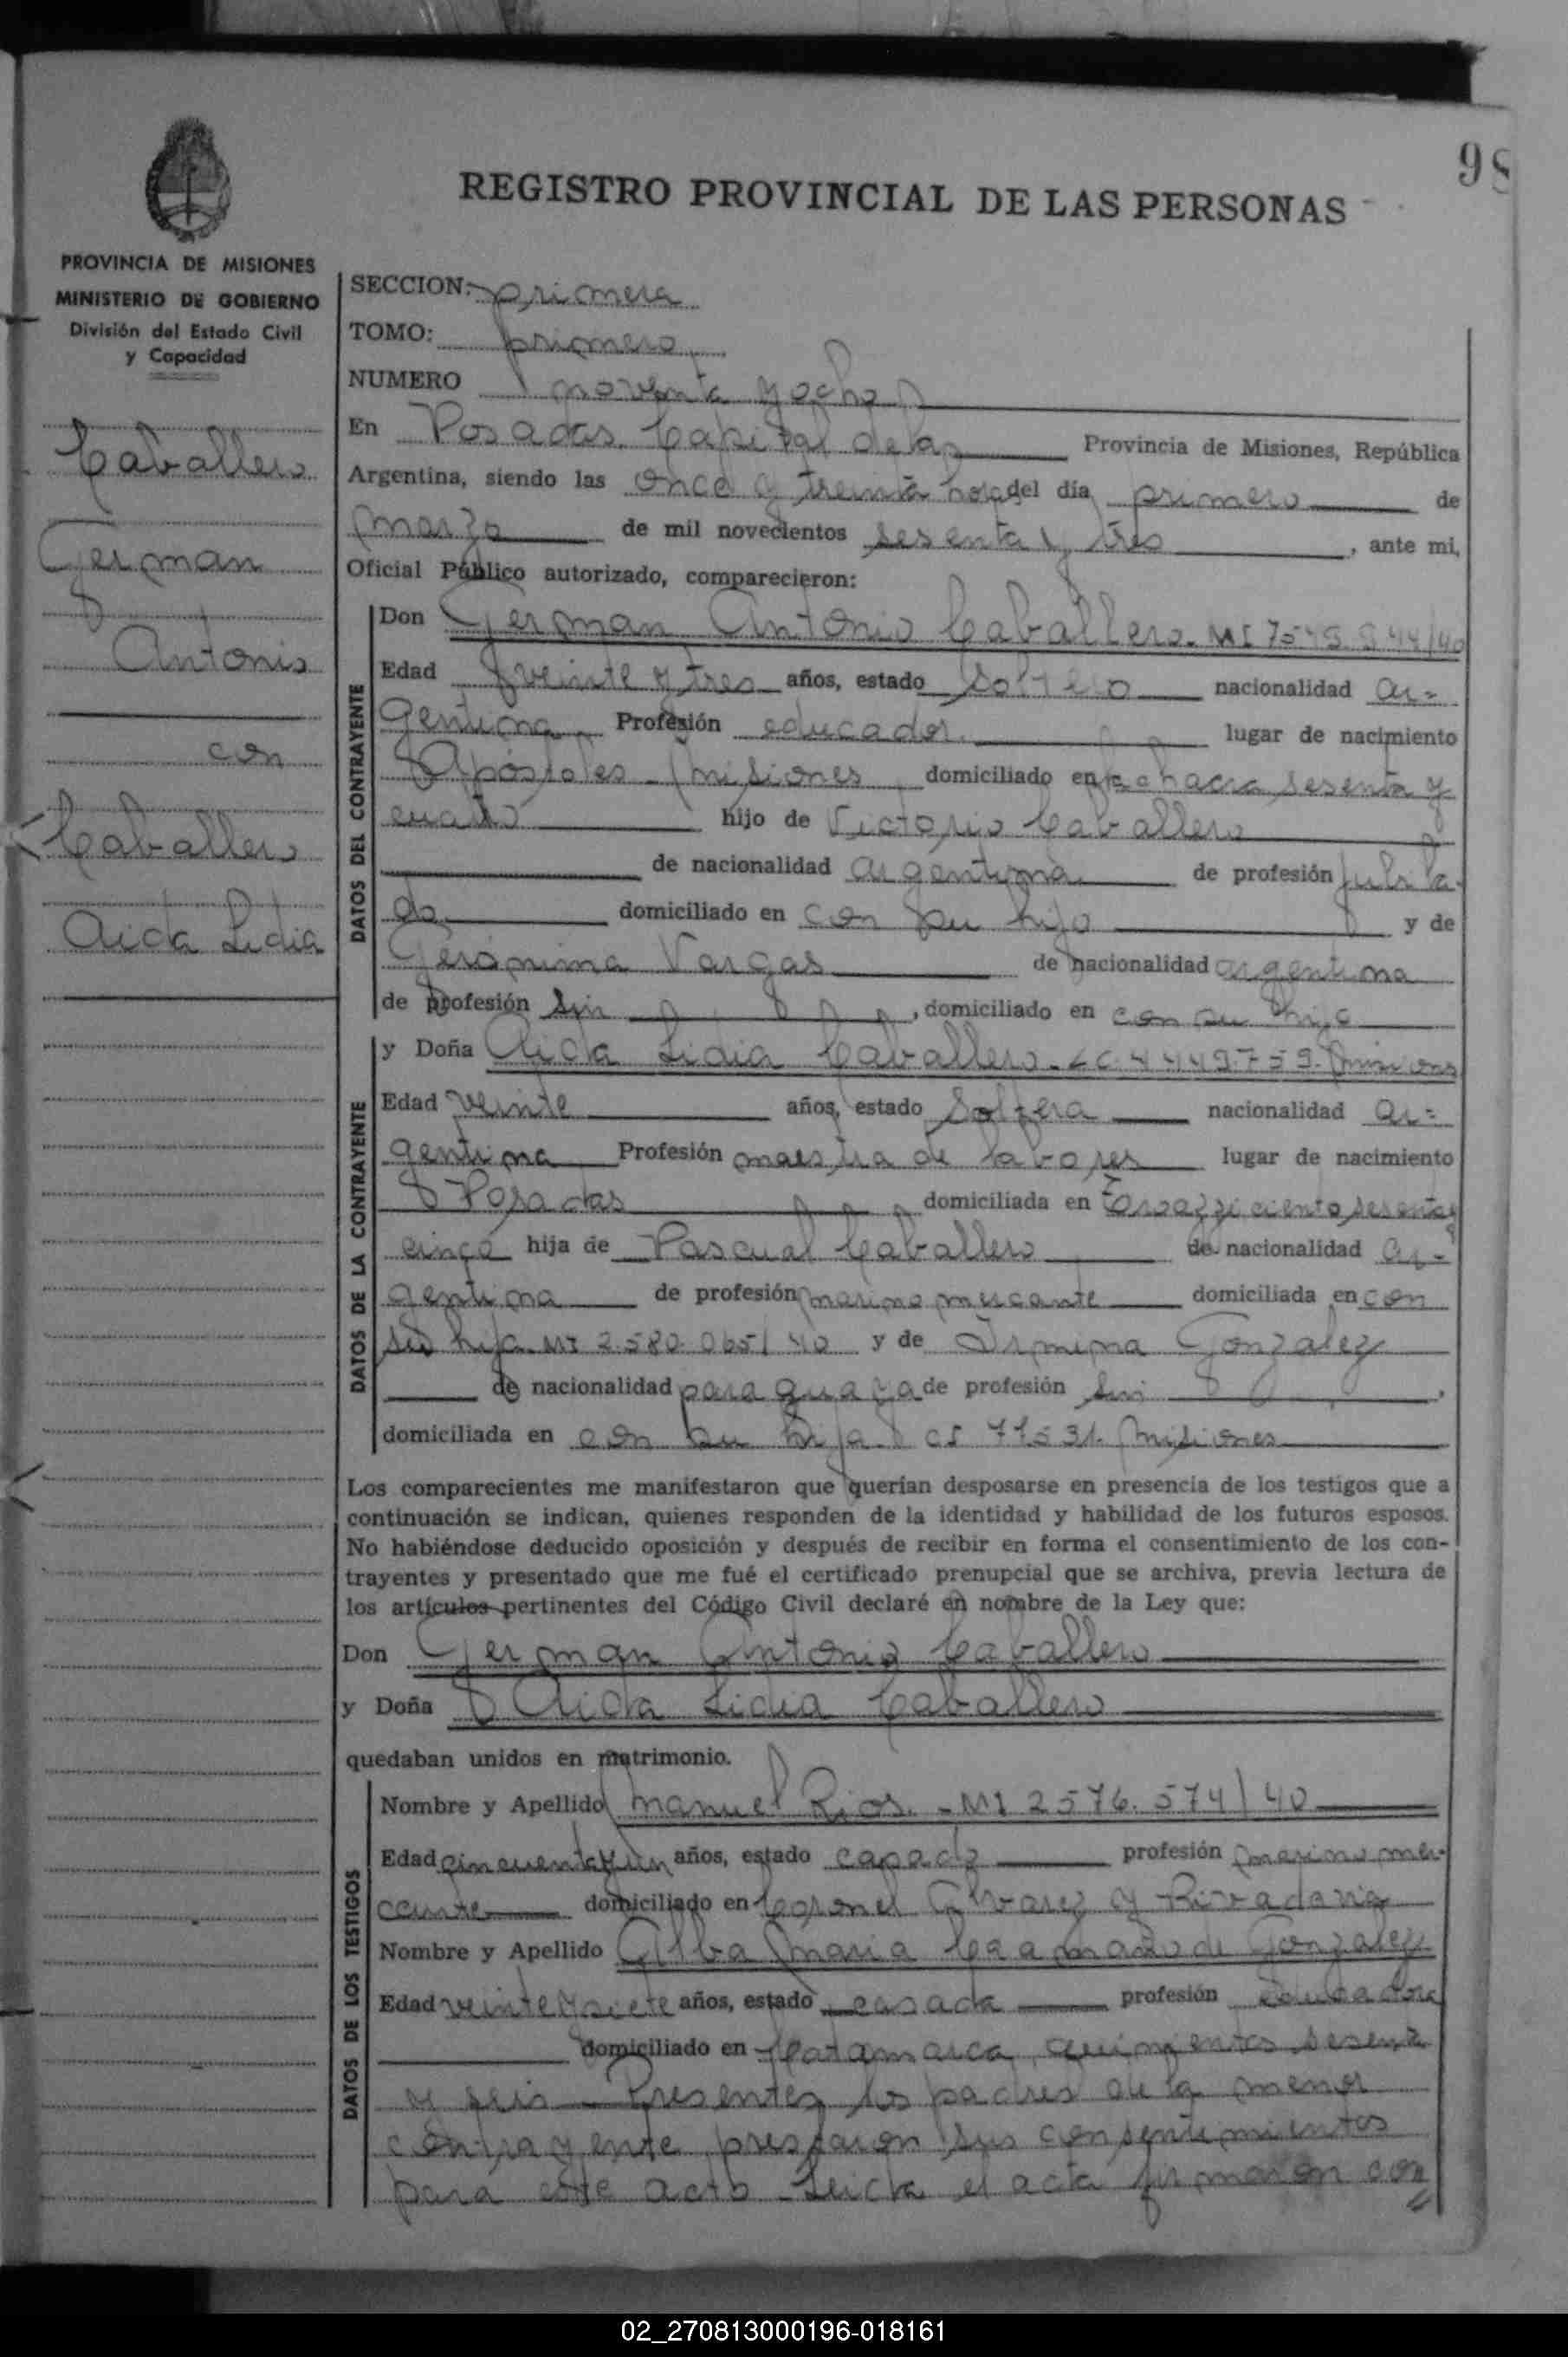 98
REGISTRO PROVINCIAL DE LAS PERSONAS
PROVINCIA DE MISIONES
MINISTERIO DE GOBIERNO
División del Estado Civil
y Capacidad
Caballero
German
Antonio
con
Caballero
Aida Lidia
SECCION: primera
TOMO: primero
NUMERO noventa y ocho
En Posadas Capital de la Provincia de Misiones, República
Argentina, siendo las once y treinta horas del día primero de
marzo de mil novecientos sesenta y tres, ante mi,
Oficial Público autorizado, comparecieron:
DATOS DEL CONTRAYENTE
Don German Antonio Caballero - MI
Edad veinte y tres años, estado soltero nacionalidad ar-
gentina Profesión educador lugar de nacimiento
Apóstoles - Misiones domiciliado en chacra sesenta y
cuatro hijo de Victorio Caballero
de nacionalidad argentina de profesión jubila-
do domiciliado en con su hijo y de
Gerónima Vargas de nacionalidad argentina
de profesión sin, domiciliado en con su hijo
DATOS DE LA CONTRAYENTE
y Doña Aida Lidia Caballero - LC 4.449.759. Misiones
Edad veinte años, estado soltera nacionalidad ar-
gentina Profesión maestra de labores lugar de nacimiento
Posadas domiciliada en ciento sesenta y
cinco hija de Pascual Caballero de nacionalidad ar-
gentina de profesión marino mercante domiciliada en con
su hija MI 2.580.065/40 y de Irmina Gonzalez
de nacionalidad paraguaya de profesión sin,
domiciliada en con su hija CI 77531. Misiones
Los comparecientes me manifestaron que querían desposarse en presencia de los testigos que a
continuación se indican, quienes responden de la identidad y habilidad de los futuros esposos.
No habiéndose deducido oposición y después de recibir en forma el consentimiento de los con-
trayentes y presentado que me fué el certificado prenupcial que se archiva, previa lectura de
los artículos pertinentes del Código Civil declaré en nombre de la Ley que:
Don German Antonio Caballero
y Doña Aida Lidia Caballero
quedaban unidos en matrimonio.
DATOS DE LOS TESTIGOS
Nombre y Apellido Manuel Rios - MI 2576.574/40
Edad cincuenta y un años, estado casado profesión marino mer-
cante domiciliado en Coronel Alvarez y Rivadavia
Nombre y Apellido Alba Maria de Gonzalez
Edad veinte y siete años, estado casada profesión educadora
domiciliado en Catamarca quinientos sesenta
y seis - Presentes los padres de la menor
contrayente prestaron sus consentimientos
para este acto - Leida el acta firmaron con
02_270813000196-018161